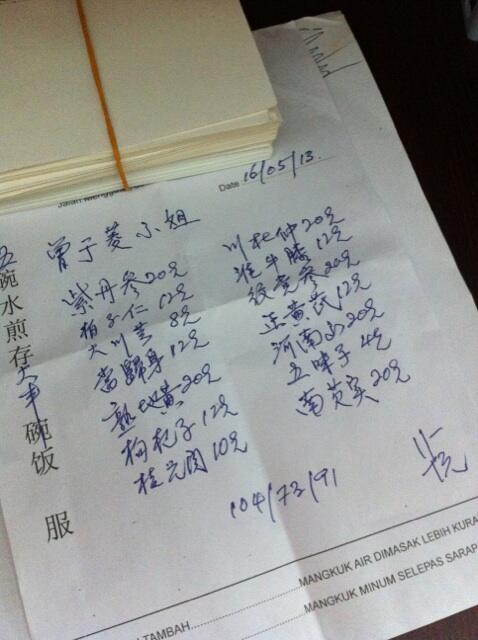 Jalan Mengg
Date 16/05/13
曾子菱小姐
紫丹参20克
柏子仁 12克
大川芎 8克
當歸身 12克
熟地黄20克
枸杞子12克
桂元肉10克
川杜仲20克
淮牛膝 12克
纹党参20克
北黄芪12克
河南山20克
五味子 4克
南芡实20克
104/73/91
碗水煎存大半碗饭
服
MANGKUK AIR DIMASAK LEBIH KURA
TAMBAH
MANGKUK MINUM SELEPAS SARAP